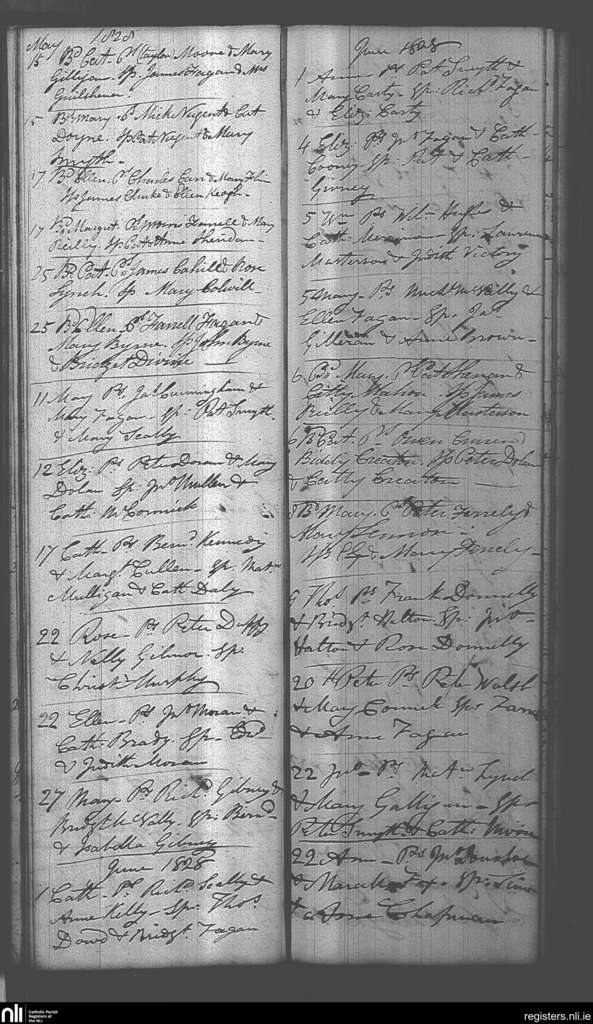 May 1828
15 Bd Cat. Ps Taylor Moore & Mary
Gilligan. Sp James Fagan & Mrs
15 Bd Mary. Ps Mick Nugent & Cat
Doyne. Sp Cat Nugent & Mary
Smyth
17 Bd Ellen. Ps Charles Carr & Mary
Sp James Clarke & Ellen Keogh
17 Bd Margret. Ps Farrell & Mary
Reilly. Sp Cat & Anne Sheridan
25 Bd Cat. Ps James Cahill & Rose
Lynch. Sp Mary Colwill
25 Bd Ellen. Ps Farrell Fagan &
Mary Byrne. Sp John Byrne
& Bridget Divine
11 Mary Ps Jas Cunningham &
Mary Fagan - Sp: Pat Smyth
& Mary Scally
12 Eliz. Ps Peter Doran & Mary
Dolan Sp. Jno Mullen &
Cath. McCormick
17 Cath - Ps Bernd Kennedy
& Margt Cullen - Sp: Mat
Mulligan & Cath Daly
22 Rose - Ps Peter Duffy
& Nelly Gilmor. Sp:
Christr Murphy
22 Ellen - Ps Jno Moran &
Cath. Brady. Sp - Edd
& Judith Moran
27 Mary Ps Richd Gibney &
Bridgt McNally. Sp: Bernd
& Isabella Gibney
June 1828
1 Cath - Ps Richd Scally &
Anne Kelly - Sp: Thos
Dowd & Bridgt Fagan
June 1828
1 Anne - Ps Pat Smyth &
Mary Carty - Sp: Richd Fagan
& Eliz: Carty
4 Eliz: Ps Jno Fagan & Cath -
Cooney Sp: Pat & Cath -
Girney
5 Wm Ps Wm Hughes &
Cath. Merriman - Sp: Lawrence
Masterson & Judith Victory
5 Mary - Ps Michl McNally &
Ellen Fagan - Sp: Jas
Gilleran & Anne Brown -
6 Bd Mary. Ps &
Kitty Sp James
Reilly & Mary Masterson
6 Bd Cat. Ps Owen
Biddy Creaton. Sp Peter Dolan
& Creaton
8 Bd Mary. Ps Peter Fenely &
Mary Lennon.
Sp & Mary Fenely -
9 Thos Ps Frank Donnelly
& Bridgt Hatton. Sp: Jno
Hatton & Rose Donnelly
20th Peter Ps Peter Walsh
& May Sp:
& Anne Fagan
22 Jno - Ps Lynch
& Mary Galligan - Sp
Peter Smyth & Cath: Moore
29 Ann - Ps Jno
& Fox - Sp:
& Anne Chapman
nli
Catholic Parish
Registers at
the NLI
registers.nli.ie